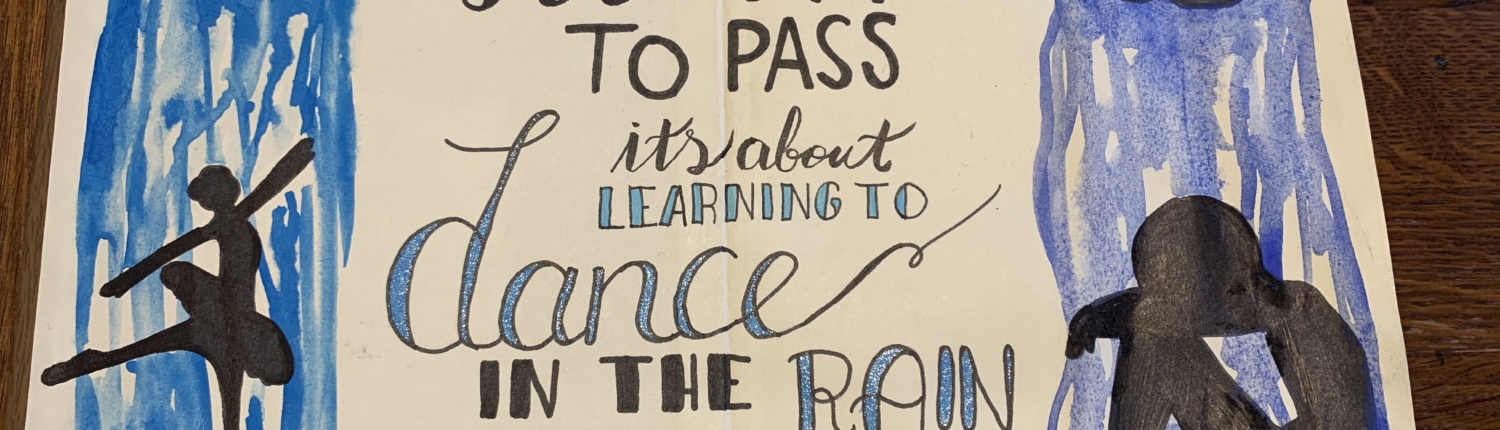 TO PASS
it's about
LEARNING TO
dance
IN THE RAIN